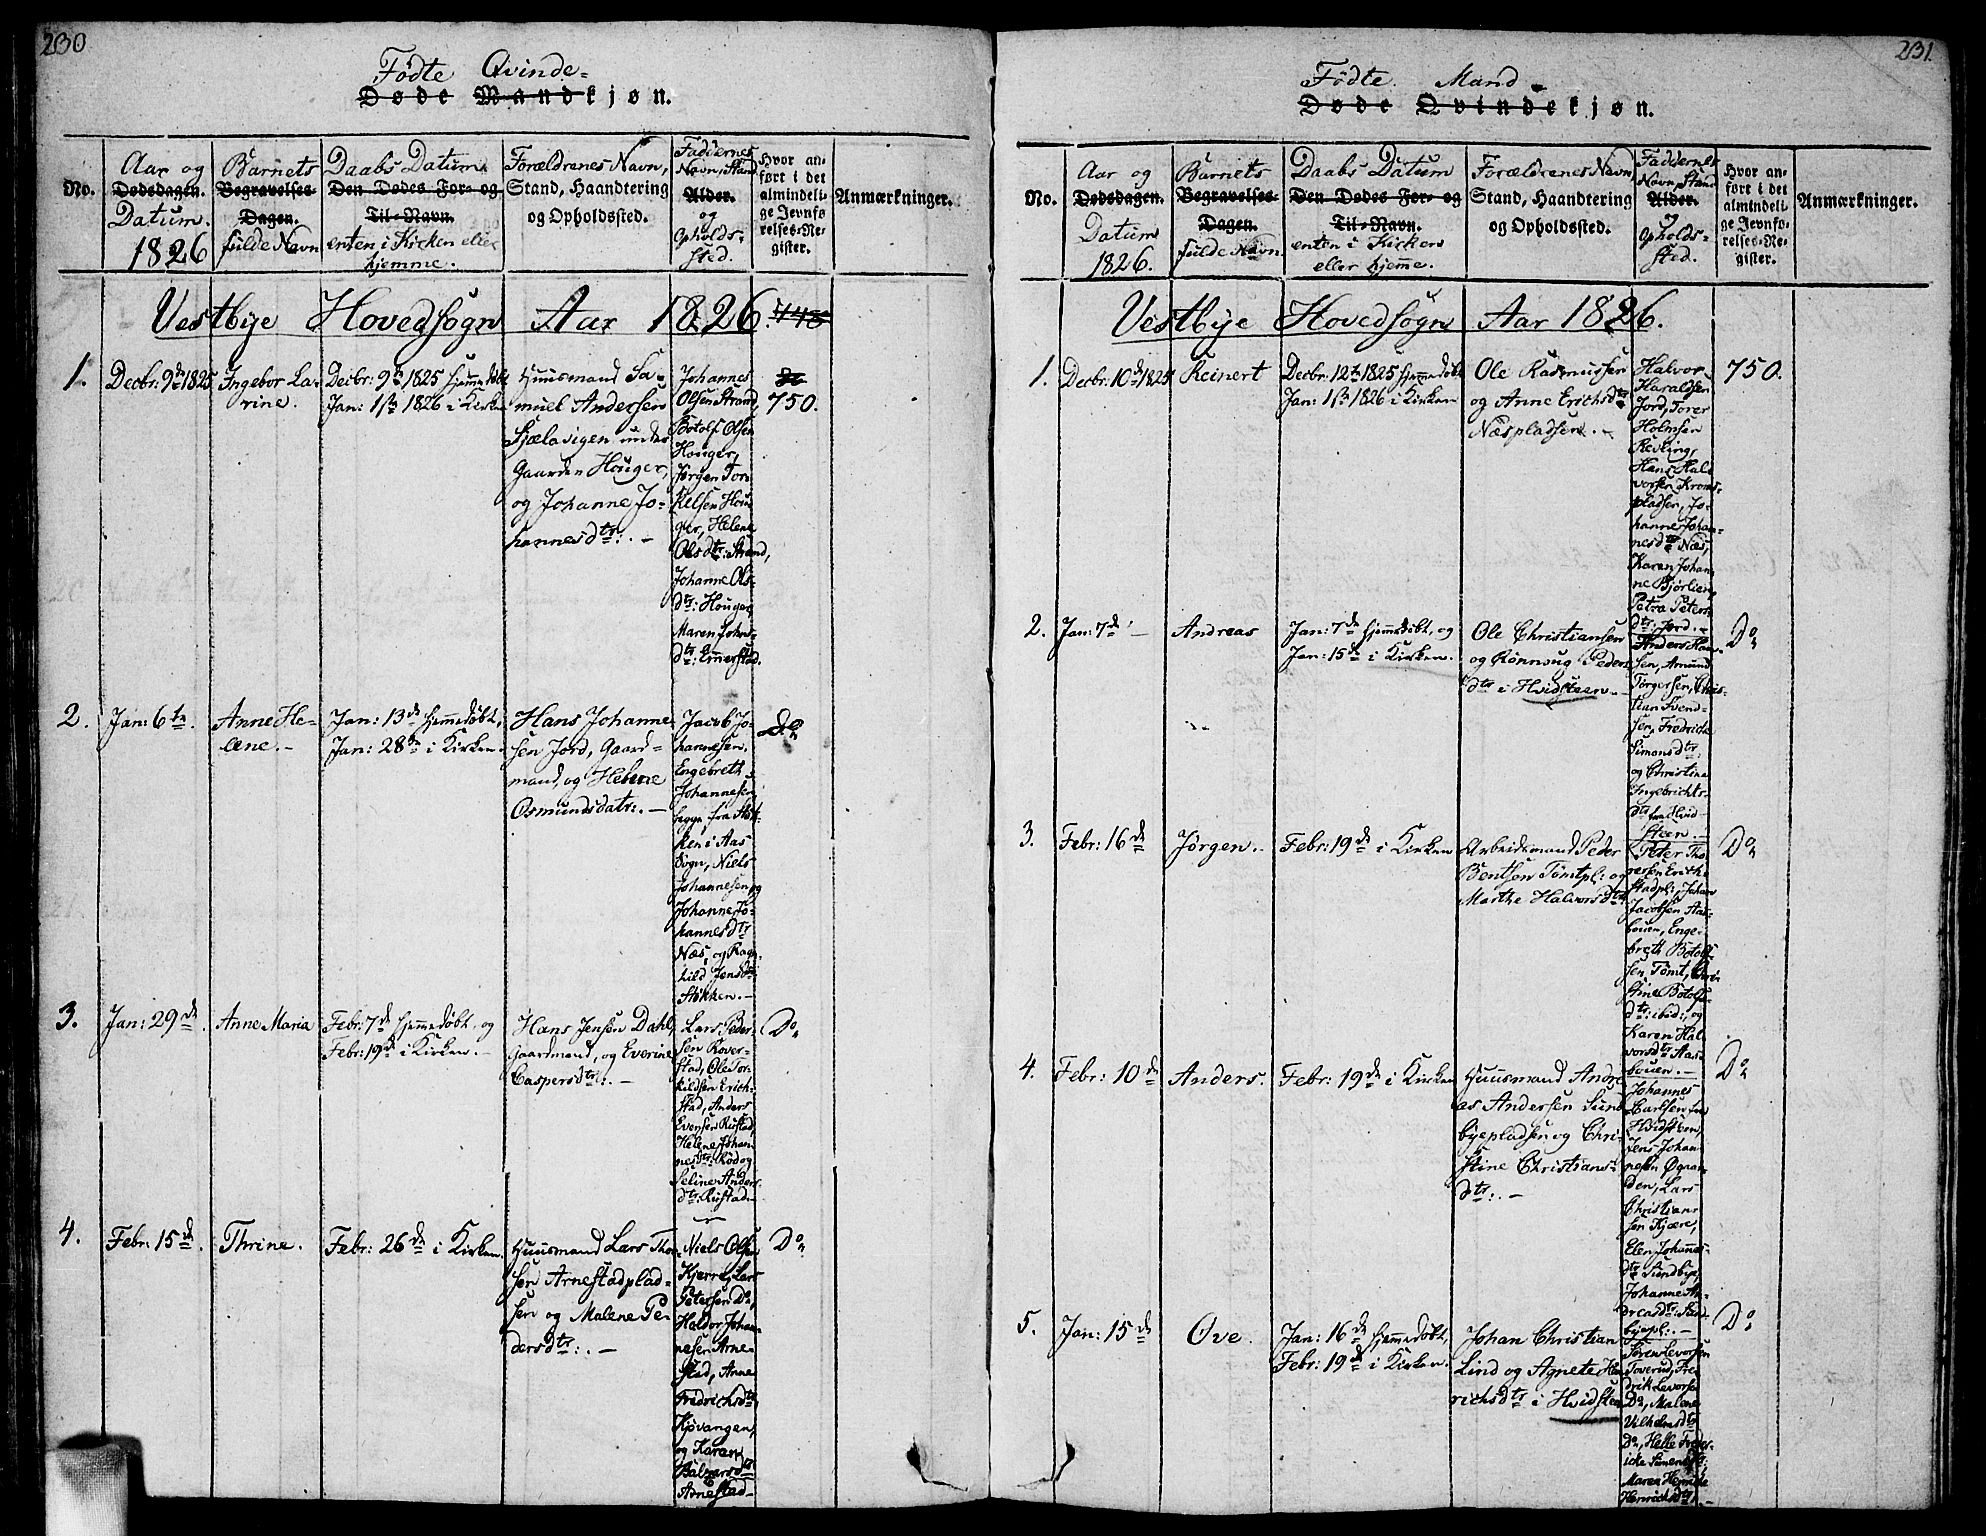 230
Födte Qvinde-
Døde Mandkjøn.
No.
Aar og
Dødsdagen.
Datum.
1826
Barnets
Begravelses-
Dagen.
fulde Navn
Daabs Datum
Den Dødes For- og
Til-Navn.
enten i Kirken eller
hjemme.
Forældrenes Navn,
Stand, Haandtering
og Opholdssted.
Faddernes
Navn, Stand
Alder.
og
Opholds-
sted.
Hvor an-
ført i det
almindeli-
ge Jevnfø-
relses-Re-
gister.
Anmærkninger.
Vestbye Hovedsogn Aar 1826.
1.
Decbr: 9de 1825
Ingebor La-
rine.
Decbr: 9de 1825 hjemmedøbt
Jan: 1ste 1826 i Kirken
Huusmand Sa-
muel Andersen
Sjælavigen under
Gaarden Houger,
og Johanne Jo-
hannesdtr: . -
Johannes
Olsen Strand,
Botolf Olsen
Houger,
Jørgen Tor-
kelsen Hou-
ger, Helene
Olsdtr: Strand,
Johanne Ols-
dtr: Houger,
Maren Johns-
dtr: Emmerstad.
750.
2.
Jan: 6te.
Anne He-
lene. -
Jan: 13de hjemmedøbt,
Jan: 28de i Kirken
Hans Johanne
sen Jord, Gaard-
mand, og Helene
Osmundsdatr: . -
Jacob Jo-
hannesen,
Engebreth
Johannesen,
begge fra Støk-
ken i Aas
Sogn, Niels
Johannesen og
Johanne Jo-
hannesdtr
Næs, og Ragn-
hild Jensdtr:
Støkken. -
Do
3.
Jan: 29de.
Anne Maria
Febr: 7de hjemmedøbt, og
Febr: 19de i Kirken. -
Hans Jensen Dahl,
Gaardmand, og Everine
Caspersdtr: . -
Lars Peder-
sen Rover-
stad, Ole Tor-
kildsen Erich-
stad, Anders
Evensen Rustad,
Helene Johan-
nesdtr: Rød og
Seline Anders-
dtr: Rustad. -
Do
4.
Febr: 15de.
Thrine.
Febr: 26de i Kirken.
Huusmand Lars Thor-
sen Arnestadplad-
sen og Malene Pe-
dersdtr: . -
Niels Olsen
Kjerre, Lars
Petersen Do,
Haldor Johan-
nesen Arne-
stad, Anne
Fredrichsdtr
Kjøvangen,
og Karan
Balzersdtr
Arnestad -
Do
231.
Födte Mand-
Døde Qvindekjøn.
No.
Aar og
Dødsdagen.
Datum
1826.
Barnets
Begravelses-
Dagen.
fulde Navn.
Daabs Datum
Den Dødes For- og
Til-Navn.
enten i Kirken
eller hjemme.
Forældrenes Navn
Stand, Haandtering
og Opholdssted.
Faddernes
Navn, Stand
Alder.
og
Opholds-
sted.
Hvor an-
ført i det
almindeli-
ge Jevnfø-
relses-Re-
gister.
Anmærkninger.
Vestbye Hovedsogn Aar 1826.
1.
Decbr: 10de 1825
Reinert
Decbr: 12te 1825 hjemmedøbt
Jan: 1ste 1826 i Kirken
Ole Rasmussen
og Anne Erichsdtr
Næspladsen. -
Halvor
Haraldsen
Jord, Torer
Holmsen
Revling,
Hans Hal-
vorsen Krom-
pladsen, Jo-
hanne Johan-
nesdtr Næs,
Karen Johan-
ne Bjørlien,
Petra Peters-
dtr: Jord. -
750.
2.
Jan: 7de -
Andreas
Jan: 7de hjemmedøbt, og
Jan: 15de i Kirken.
Ole Christiansen
og Rønnoug Peders-
dtr i Hvidsteen. -
Anders Han-
sen, Amund
Torgersen, Chris-
tian Svend-
sen, Fredricke
Simonsdtr:
og Christine
Ingebrichts-
dtr fra Hvid-
steen. -
Do
3.
Febr: 16de
Jørgen. -
Febr: 19de i Kirken
Arbeidsmand Peder
Bentsen Tömtpl: og
Marthe Halvorsdtr
Peter Tho-
resen Erich-
stadpl:, Johan
Jacobsen Aas-
bouen, Enge-
breth Botolf-
sen Tömt, Chri-
stine Botolfs-
dtr: ibid:, og
Karen Hal-
vorsdtr Aas-
bouen. -
Do
4.
Febr: 10de
Anders.
Febr: 19de i Kirken
Huusmand Andre-
as Andersen Sund-
byepladsen og Chri-
stine Christians-
dtr: . -
Johannes
Carlsen fra
Hvidsteen,
Jens Johan-
nesen Øgaar-
den, Lars
Christian-
sen Kjære,
Elen Johannes-
dtr Sundbye,
Johanne An-
dreasdtr: Sund-
byepl: . -
Do
5.
Jan: 15de
Ove.
Jan: 16de hjemmedøbt,
Febr: 19de i Kirken.
Johan Christian
Lind og Agnete Hen-
richsdtr i Hvidsteen
Søren Levorsen
Toverud, Fre-
drik Levorsen
Do, Malene
Vilhelmsdtr
Do, Helle Frede-
ricke Simensdtr,
Maren Henricke
Henrichsdtr. -
Do